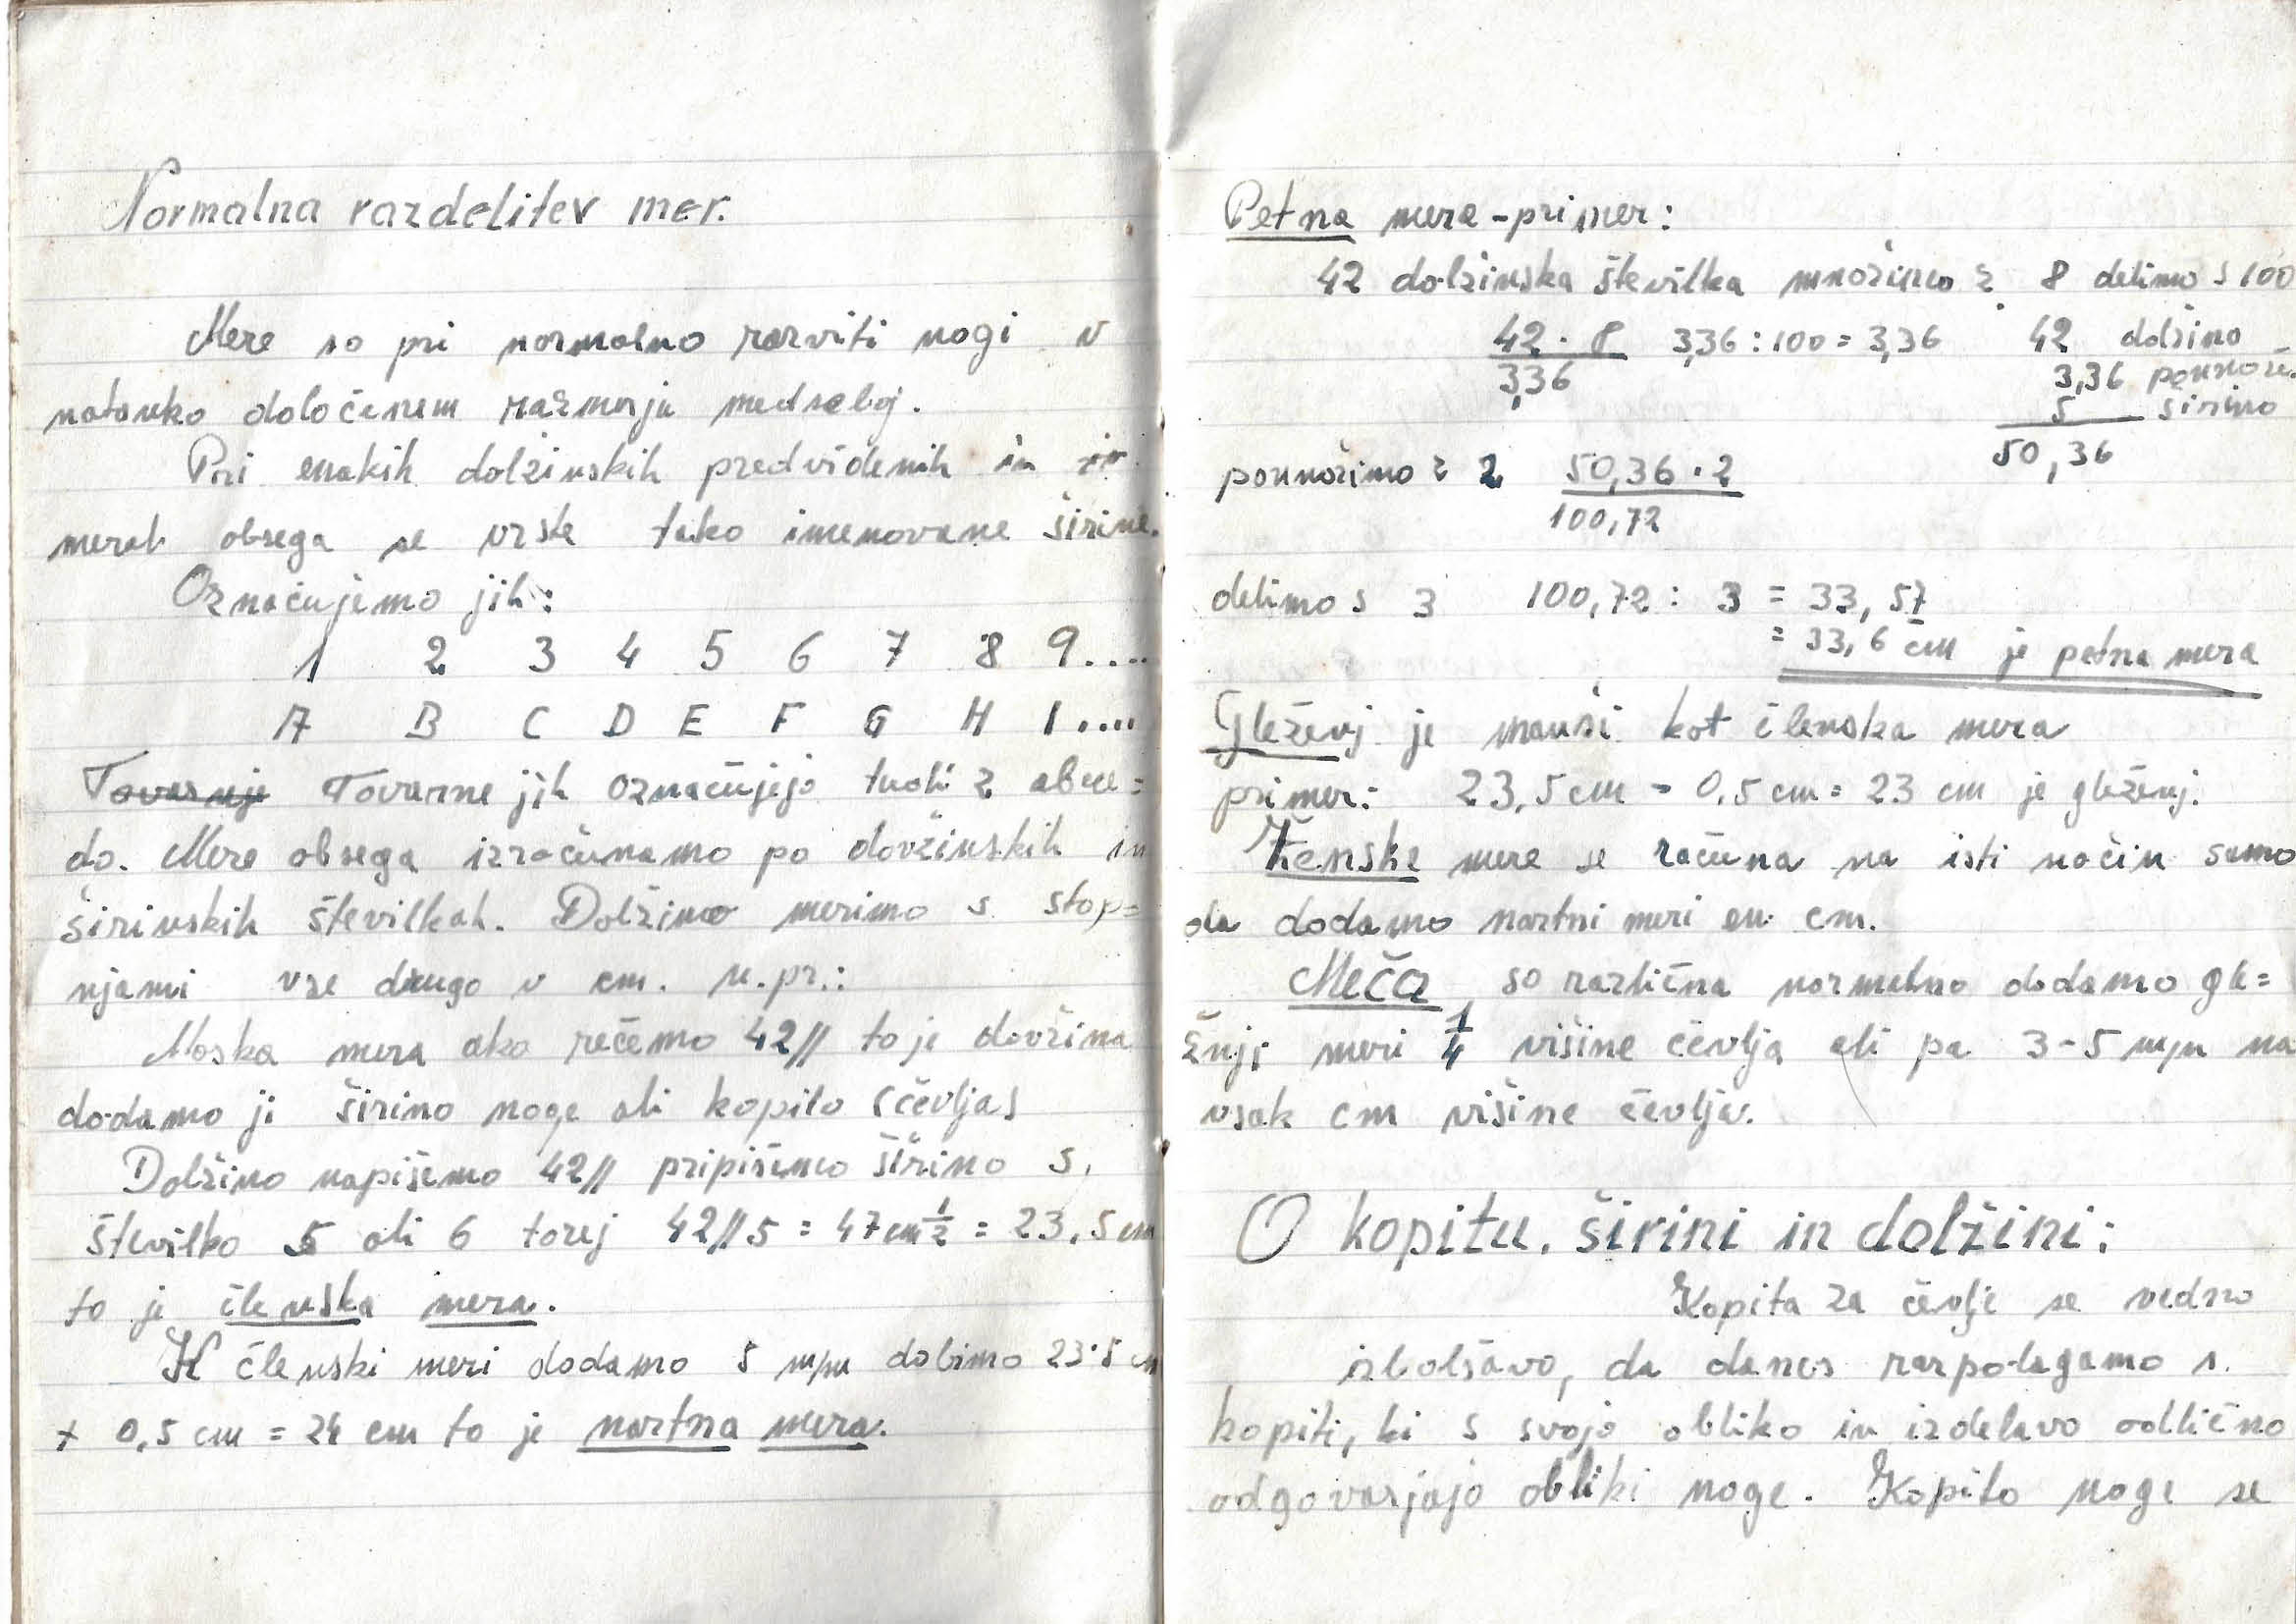 Normalna razdelitev mer.
Mere so pri normalno razviti nogi v
natanko določenem razmerju medseboj.
Pri enakih dolžinskih predvidenih in
merah obsega se vrste tako imenovane širine.
Označujemo jih:
1 2 3 4 5 6 7 8 9....
A B C D E F G H I....
Tovarnje Tovarne jih označujejo tudi z abece=
do. Mere obsega izračunamo po dovžinskih in
širinskih številkah. Dolžino merimo s stop=
njami vse drugo v cm. n.pr.:
Moska mera ako rečemo 42// to je dovžina
dodamo ji širino noge ali kopito (čevlja)
Dolžino napišemo 42// pripišemo širino s.
številko 5 ali 6 torej 42//5 = 47cm ½ = 23,5 cm
to je členska mera.
K členski meri dodamo 5 m/m dobimo 23·5 cm
+ 0,5 cm = 24 cm to je nartna mera.
Petna mera - primer:
42 dolžinska številka množimo z 8 delimo s 100
42 · 8 3,36 : 100 = 3,36 42 dolžino
3,36 3,36 pomnože.
5 širino
50,36
pomnožimo z 2 50,36 · 2
100,72
delimo s 3 100,72 : 3 = 33,57
= 33,6 cm je petna mera
Gleženj je manši kot členska mera
primer: 23,5 cm - 0,5 cm = 23 cm je gleženj.
Ženske mere se računa na isti način samo
da dodamo nartni meri en cm.
Meča so različna normalno dodamo gle=
žnji meri 1/4 višine čevlja ali pa 3-5 m/m na
vsak cm višine čevlja.
O kopitu, širini in dolžini:
Kopita za čevlje se vedno
izbolšavo, da danes razpolagamo s.
kopiti, ki s svojo obliko in izdelavo odlično
odgovarjajo obliki noge. Kopito noge se